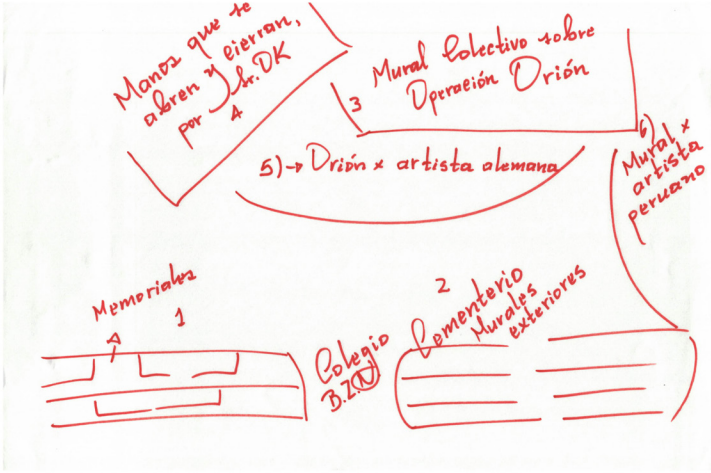 Manos que se
abren y cierran,
por Sr. DK
4
Mural Colectivo sobre
3 Operación Orión
5)→ Orión x artista alemana
6)
Mural x
artista
peruano
Memoriales
1
2
Cementerio
Murales
exteriores
Colegio
B.Z.N